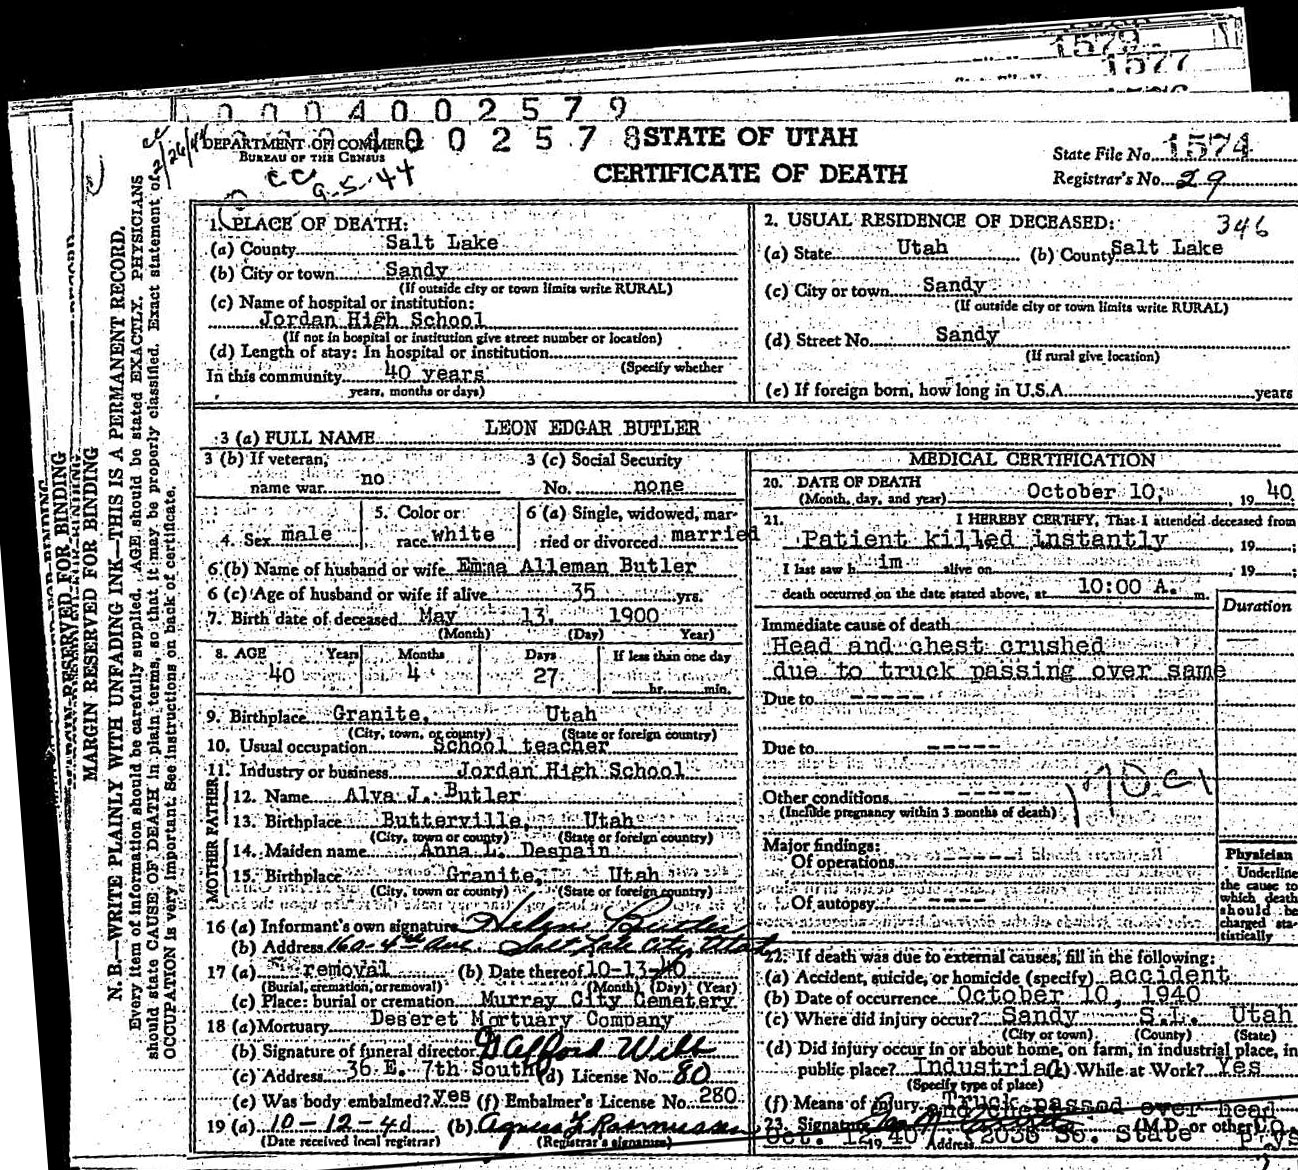 1579
1577
0004002579
DEPARTMENT OF COMMERCE 0004002578 STATE OF UTAH
BUREAU OF THE CENSUS
CC 9-5-44
CERTIFICATE OF DEATH
State File No. 1574
Registrar's No. 29
MARGIN RESERVED FOR BINDING
N. B.—WRITE PLAINLY WITH UNFADING INK—THIS IS A PERMANENT RECORD.
Every item of information should be carefully supplied. AGE should be stated EXACTLY. PHYSICIANS
should state CAUSE OF DEATH in plain terms, so that it may be properly classified. Exact statement of
OCCUPATION is very important. See instructions on back of certificate.
1. PLACE OF DEATH:
(a) County Salt Lake
(b) City or town Sandy
(If outside city or town limits write RURAL)
(c) Name of hospital or institution:
Jordan High School
(If not in hospital or institution give street number or location)
(d) Length of stay: In hospital or institution
(Specify whether
In this community 40 years
years, months or days)
2. USUAL RESIDENCE OF DECEASED: 346
(a) State Utah (b) County Salt Lake
(c) City or town Sandy
(If outside city or town limits write RURAL)
(d) Street No. Sandy
(If rural give location)
(e) If foreign born, how long in U.S.A. years
3 (a) FULL NAME LEON EDGAR BUTLER
3 (b) If veteran, 3 (c) Social Security
name war no No. none
4. Sex male 5. Color or race white 6 (a) Single, widowed, married or divorced married
6 (b) Name of husband or wife Emma Alleman Butler
6 (c) Age of husband or wife if alive 35 yrs.
7. Birth date of deceased May 13, 1900
(Month) (Day) Year)
8. AGE Years Months Days If less than one day
40 4 27 hr. min.
9. Birthplace Granite, Utah
(City, town, or county) (State or foreign country)
10. Usual occupation School teacher
11. Industry or business Jordan High School
FATHER
12. Name Alva J. Butler
13. Birthplace Butterville, Utah
(City, town or county) (State or foreign country)
MOTHER
14. Maiden name Anna L. Despain
15. Birthplace Granite, Utah
(City, town or county) (State or foreign country)
16 (a) Informant's own signature Butler
(b) Address 160-4th Ave Salt Lake City, Utah
17 (a) removal (b) Date thereof 10-13-40
(Burial, cremation, or removal) (Month) (Day) (Year)
(c) Place: burial or cremation Murray City Cemetery
18 (a) Mortuary Deseret Mortuary Company
(b) Signature of funeral director
(c) Address 36 E. 7th South (d) License No. 80
(e) Was body embalmed? yes (f) Embalmer's License No. 280
19 (a) 10-12-40 (b) Agnes F Rasmussen
(Date received local registrar) (Registrar's signature)
MEDICAL CERTIFICATION
20. DATE OF DEATH
(Month, day, and year) October 10, 19 40
21. I HEREBY CERTIFY, That I attended deceased from
Patient killed instantly , 19
I last saw h im alive on , 19 ;
death occurred on the date stated above, at 10:00 A. m.
Duration
Immediate cause of death
Head and chest crushed
due to truck passing over same
Due to -----
Due to ----
Other conditions -----
(Include pregnancy within 3 months of death)
170 c1
Major findings:
Of operations -----
Of autopsy ----
Physician
Underline
the cause to
which death
should be
charged sta-
tistically
22. If death was due to external causes, fill in the following:
(a) Accident, suicide, or homicide (specify) accident
(b) Date of occurrence October 10, 1940
(c) Where did injury occur? Sandy S.L. Utah
(City or town) (County) (State)
(d) Did injury occur in or about home, on farm, in industrial place, in
public place? Industrial (e) While at Work? Yes
(Specify type of place)
(f) Means of injury Truck passed over head
and chest
23. Signature (M.D. or other)
Oct. 12 19 40 Address 2036 So. State